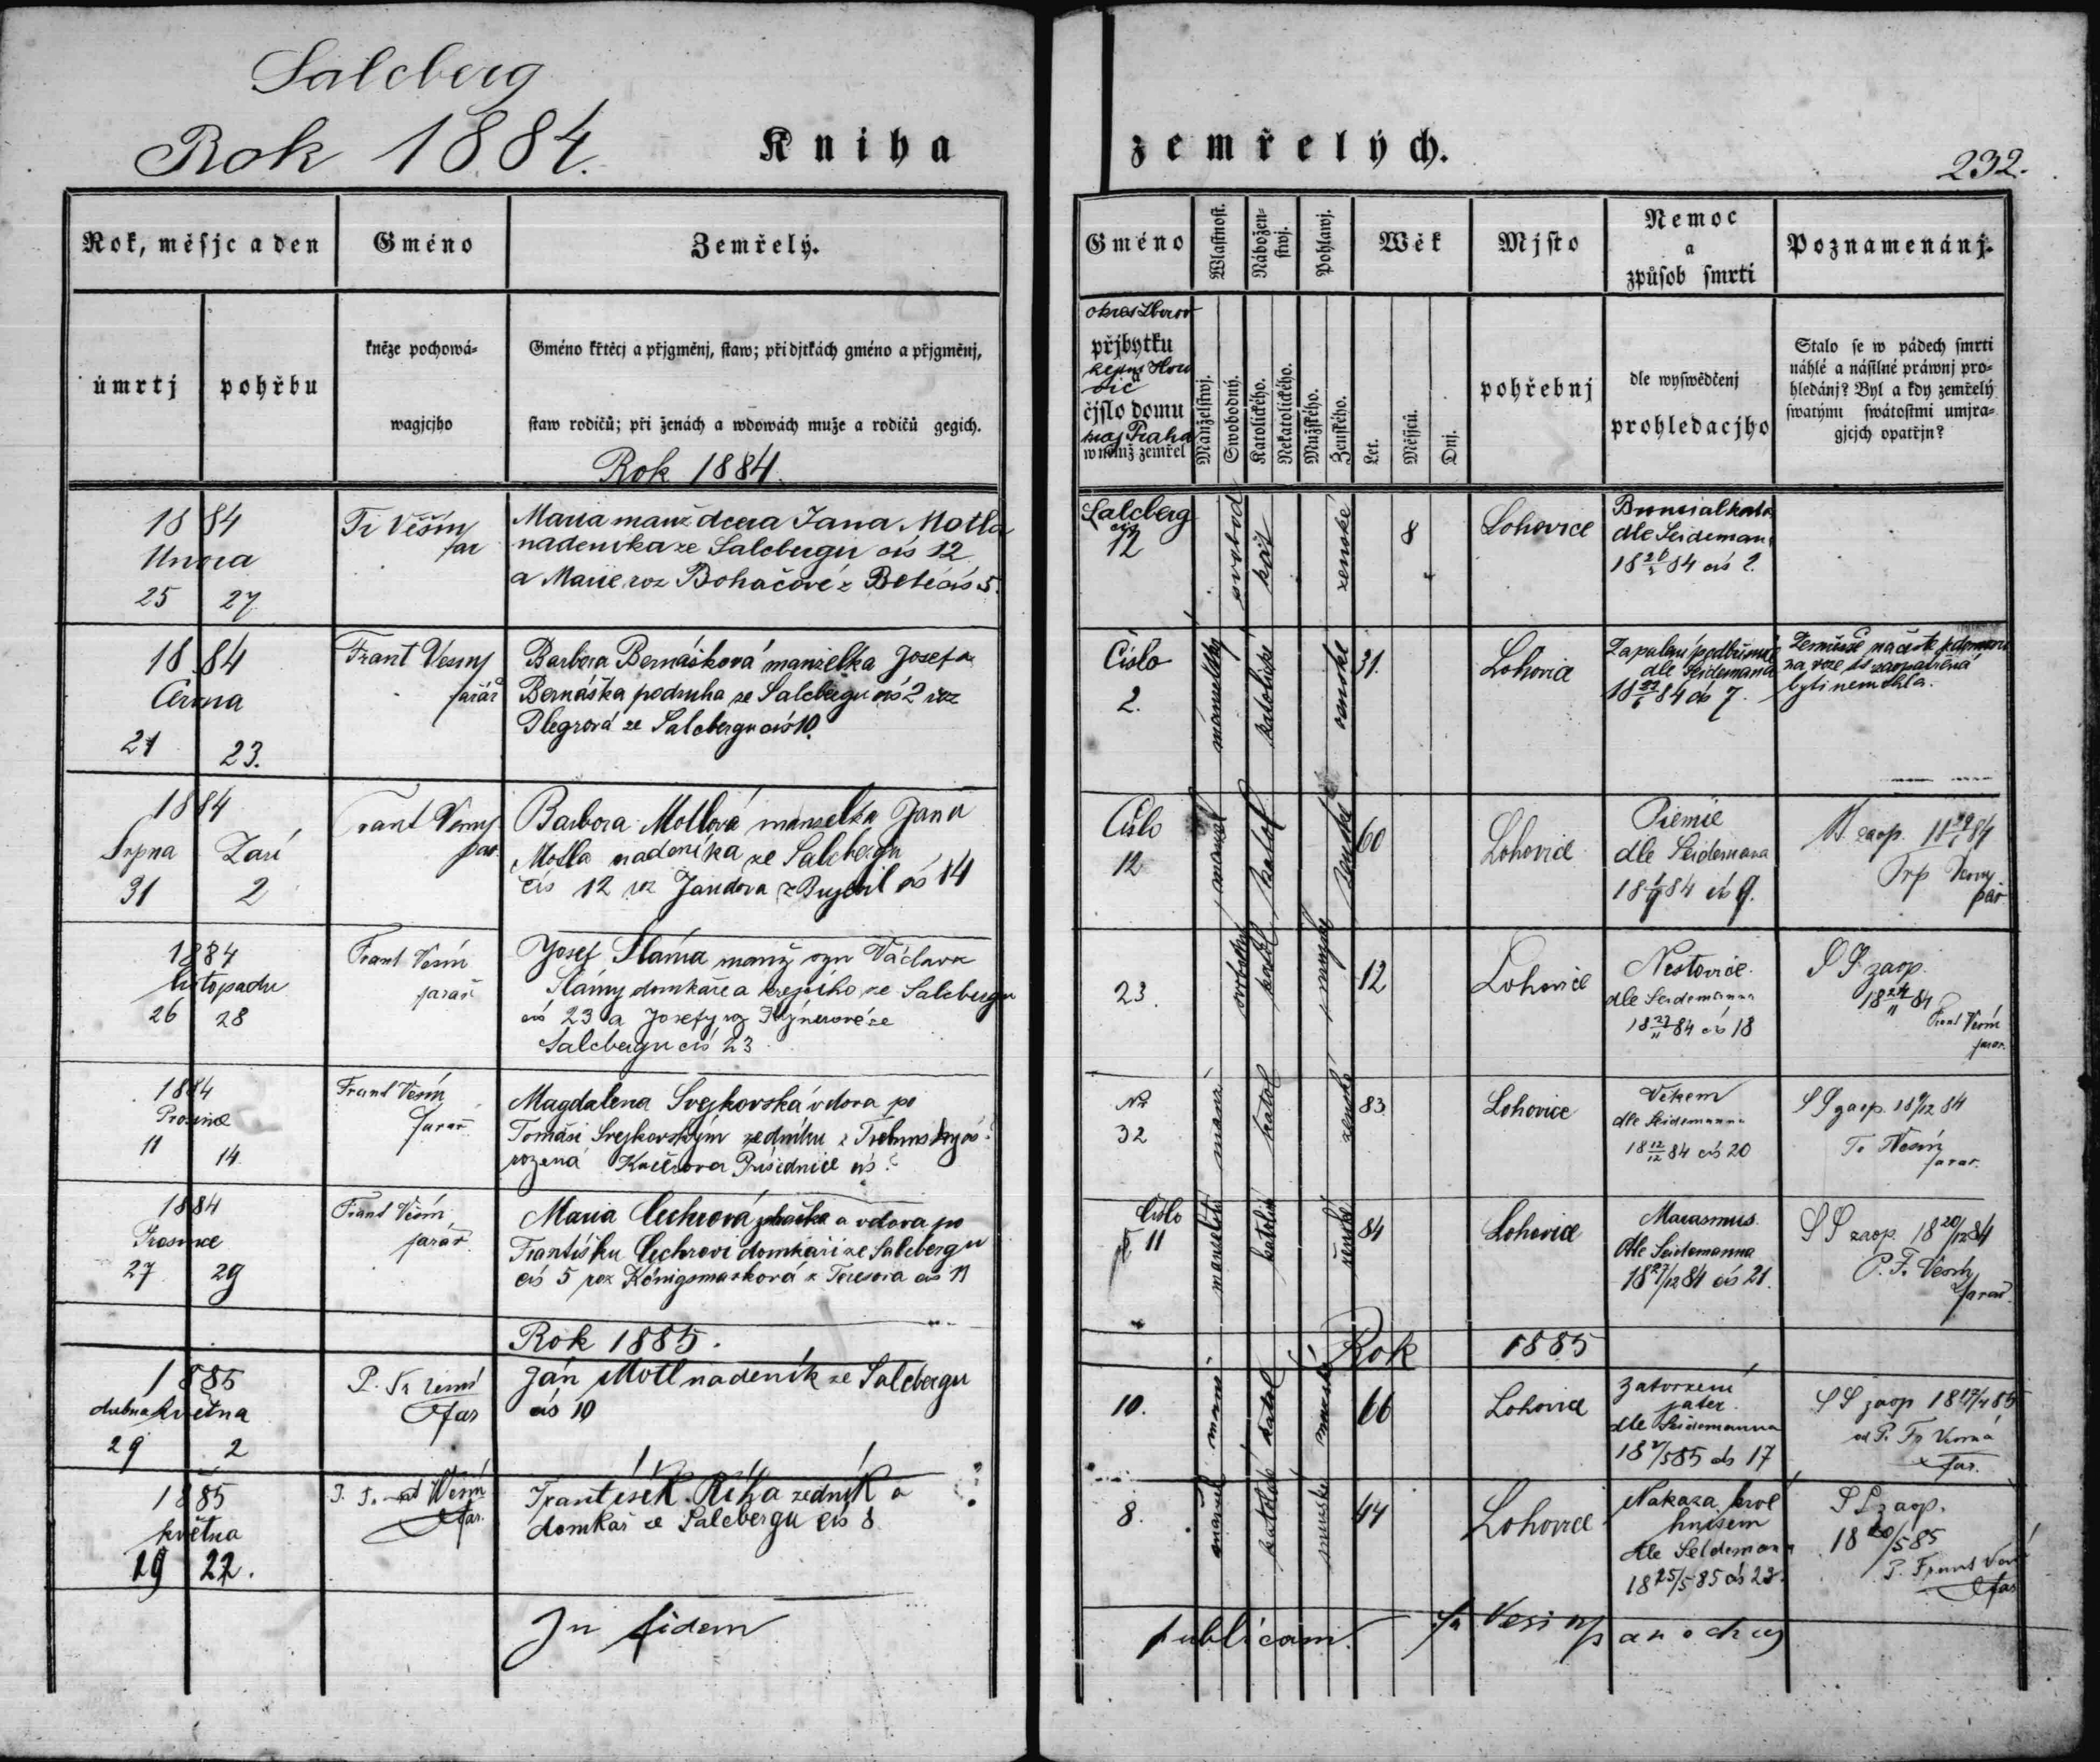 Salcberg
Rok 1884.
Kniha
zemřelých.
232.
Rok, měsjc a den
Gméno
Zemřelý.
úmrtj
pohřbu
kněze pochowá-
wagjcjho
Gméno křtěcj a přjgměnj, staw; při djtkách gméno a přjgměnj,
staw rodičů; při ženách a wdowách muže a rodičů gegich.
Rok 1884.
1884
Února
25 27
Fr Věšín
far
Maria manž dcera Jana Motla
nadenika ze Salcbergu čís 12
a Marie roz Boháčové z čís 5.
1884
Června
21 23.
Frant Vesiny
farář
Barbora Bernášková manželka Josefa
Bernáška podruha ze Salcbergu čís 2 roz
Plegrová ze Salcbergu čís 10.
1884
Srpna Zarí
31 2
Frant Vesiny
far.
Barbora Motlová manzelka Jana
Motla nadenika ze Salcbergu
čís 12 roz Jandova z čís 14
1884
listopadu
26 28
Frant Vesin
farař
Josef Sláma manž syn Václava
Slámy domkáře a krejčího ze Salcbergu
čís 23 a Josefy roz ze
Salcbergu čís 23
1884
Prosince
11 14
Frant Vesín
farař
Magdalena Svejkovská vdova po
Tomáši Svejkovským zedníku z
rozená čís ?
1884
Prosince
27 29
Frant Věsín
farář.
Maria Cechrová a vdova po
Františku Cechrovi domkáři ze Salcbergu
čís 5 roz Königsmarková z Teresova čís 11
Rok 1885.
1885
dubna května
29 2
P. Fr
far
Ján Motl nadeník ze Salcbergu
čís 10
1885
května
19 22.
Wesin
far.
František Říha zedník a
domkař ze Salcbergu čís 8
In fidem
Gméno
Wlastnost.
Nábožen-
stwj.
Pohlawj.
Wěk
Mjsto
Nemoc
a
způsob smrti
Poznamenánj.
okres Zbirov
přjbytku
hejtm Horo
vic
a
čjslo domu
kraj Praha
w němž zemřel
Manželstwj.
Swobodný.
Katolického.
Nekatolického.
Mužského.
Ženského.
Let.
Měsjců.
Dnj.
pohřebnj
dle wyswědčenj
prohledacjho
Stalo se w pádech smrti
náhlé a násilné práwnj pro-
hledánj? Byl a kdy zemřelý
swatými swátostmi umjra-
gjcjch opatřjn?
Salcberg
čís
12
svobod
kat
zenské
8
Lohovice
dle Seideman
18 84 čís 2.
Číslo
2.
manzelský
katolické
zenské
31.
Lohovice
Zapalení podbřisnice
dle Seidemanna
18 84 čís 7.
byti nemohla.
Číslo
12
manzel
katol
zenské
60
Lohovice
Piemie
dle Seidemana
18 84 čís 9.
zaop.
far
23.
svobodný
katol
12
Lohovice
Nestovice.
dle Seidemanna
18 27/11 84 čís 18
S S zaop.
18 24/11 84
Frant Vesín
farar.
Nr
32
manž
katol
zenské
83
Lohovice
Věkem
dle Seidemanna
18 12/12 84 čís 20
S S zaop. 18 9/12 84
Fr Wesín
farar.
Číslo
11
manzelské
katolické
84
Lohovice
Marasmus.
dle Seidemanna
18 27/12 84 čís 21.
S S zaop. 18 20/12 84
P. Fr. Vesín
farář.
Rok 1885
10.
katol
mužské
66
Lohovice
Zatvrzení
jater.
dle Seidemanna
18 /5 85 čís 17
S S zaop 18 17/4 85
od P. Fr
far.
8.
manžel
katolické
mužské
44
Lohovice
Nakaza krve
hnisem
dle Seidemana
18 25/5 85 čís 23.
S S zaop.
18 20/5 85
P. Frant
far
publicam. Fr Vesin parochus